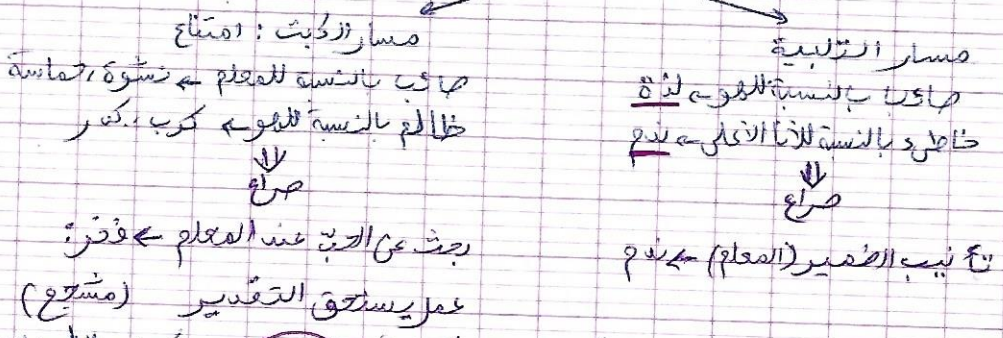 مسار التلبية
صائب بالنسبة للهو ← لذة
خاطئ بالنسبة للأنا الأعلى ← ندم
⇓
صراع
تأنيب الضمير (المعلم) ← ندم
مسار الكبت : امتناع
صائب بالنسبة للمعلم ← نشوة، حماسة
ظالم بالنسبة للهو ← كرب،
⇓
صراع
بحث عن الحبّ عند المعلم ← فخر :
عمل يستحق التقدير (مشجع)